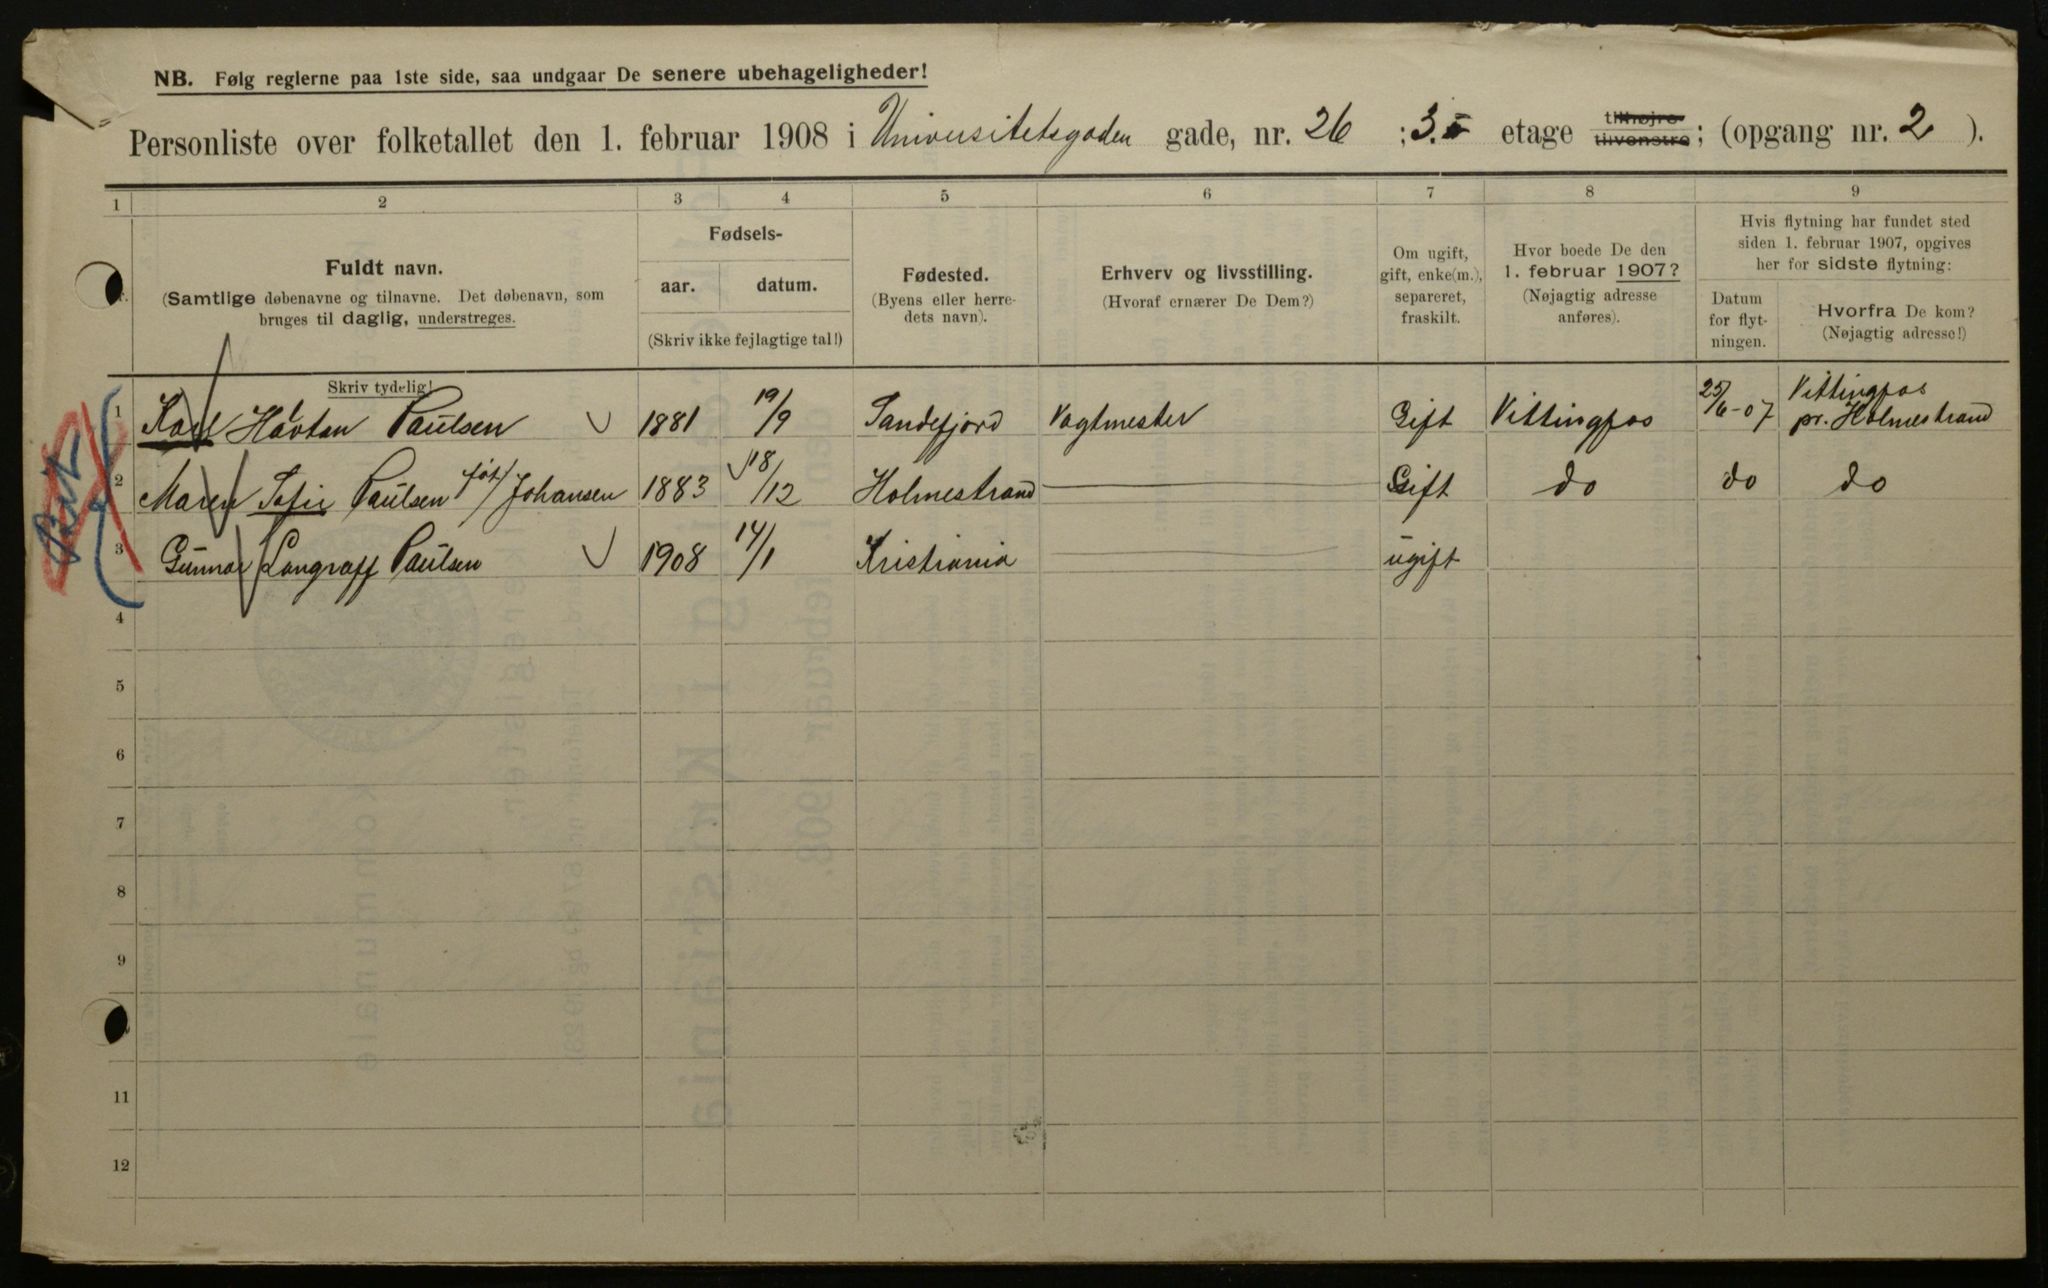 NB. Følg reglerne paa 1ste side, saa undgaar De senere ubehageligheder!
Personliste over folketallet den 1. februar 1908 i Universitetsgaden gade, nr. 26 ; 3. etage tilhøjre tilvenstre ; (opgang nr. 2 ).
1 2 3 4 5 6 7 8 9
Fuldt navn.
(Samtlige døbenavne og tilnavne. Det døbenavn, som
bruges til daglig, understreges.
Skriv tydelig!
Fødsels-
aar. datum.
(Skriv ikke fejlagtige tal!)
Fødested.
(Byens eller herre-
dets navn).
Erhverv og livsstilling.
(Hvoraf ernærer De Dem?)
Om ugift,
gift, enke(m.),
separeret,
fraskilt.
Hvor boede De den
1. februar 1907?
(Nøjagtig adresse
anføres).
Hvis flytning har fundet sted
siden 1. februar 1907, opgives
her for sidste flytning:
Datum
for flyt-
ningen.
Hvorfra De kom?
(Nøjagtig adresse!)
1 Karl Håvtan Paulsen 1881 19/9 Sandefjord Vagtmester Gift Vittingfos 25/6-07 Vittingfos
pr. Holmestrand
2 Maren Sofie Paulsen født/Johansen 1883 18/12 Holmestrand Gift do do do
3 Gunnar Langraff Paulsen 1908 14/1 Kristiania ugift
4
5
6
7
8
9
11
12